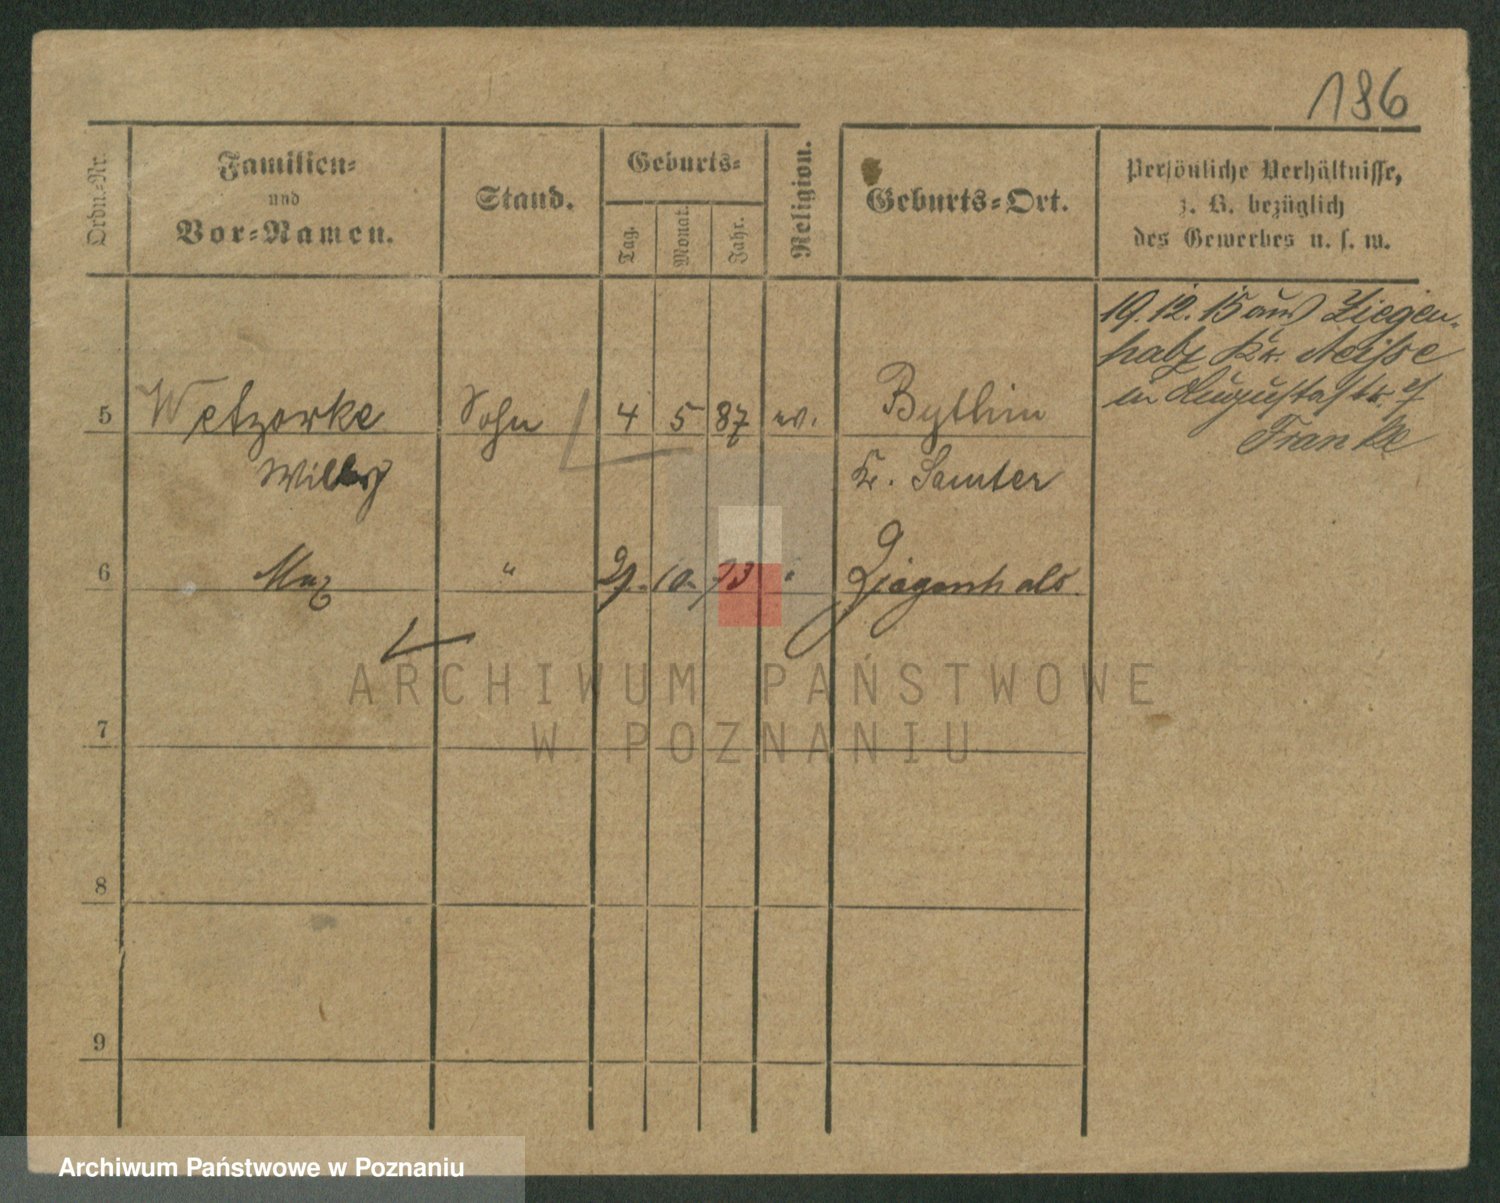 186
Ordn.-Nr.
Familien-
und
Vor-Namen.
Stand.
Geburts-
Tag.
Monat.
Jahr.
Religion.
Geburts-Ort.
Persönliche Verhältnisse,
z. B. bezüglich
des Gewerbes u. s. w.
19.12.15 aus Ziegen-
halz Kr. Neisse
in Augustastr.
Franke
5 Wetzorke Sohn 4 5 87 ev. Bythin
Willy Kr. Samter
6 Max " 10. Ziegenhals
7
8
9
ARCHIWUM PAŃSTWOWE
W POZNANIU
Archiwum Państwowe w Poznaniu